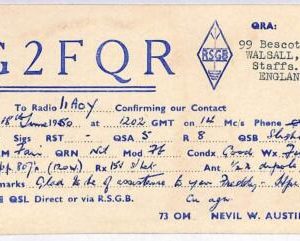 G2FQR
R S G B
QRA:
99 Bescot
WALSALL,
Staffs.
ENGLAN
To Radio I1AOY Confirming our Contact
18th June 1950 at 1202 GMT on 14 Mc's Phone
Sigs RST - QSA 5 R 8 QSB
M Fair QRN Nil Mod 78 Condx Good Wx
807's (120W) Rx Ant dipole
marks Glad to be of assistance
QSL Direct or via R.S.G.B. Cu agn
73 OM NEVIL W. AUSTI